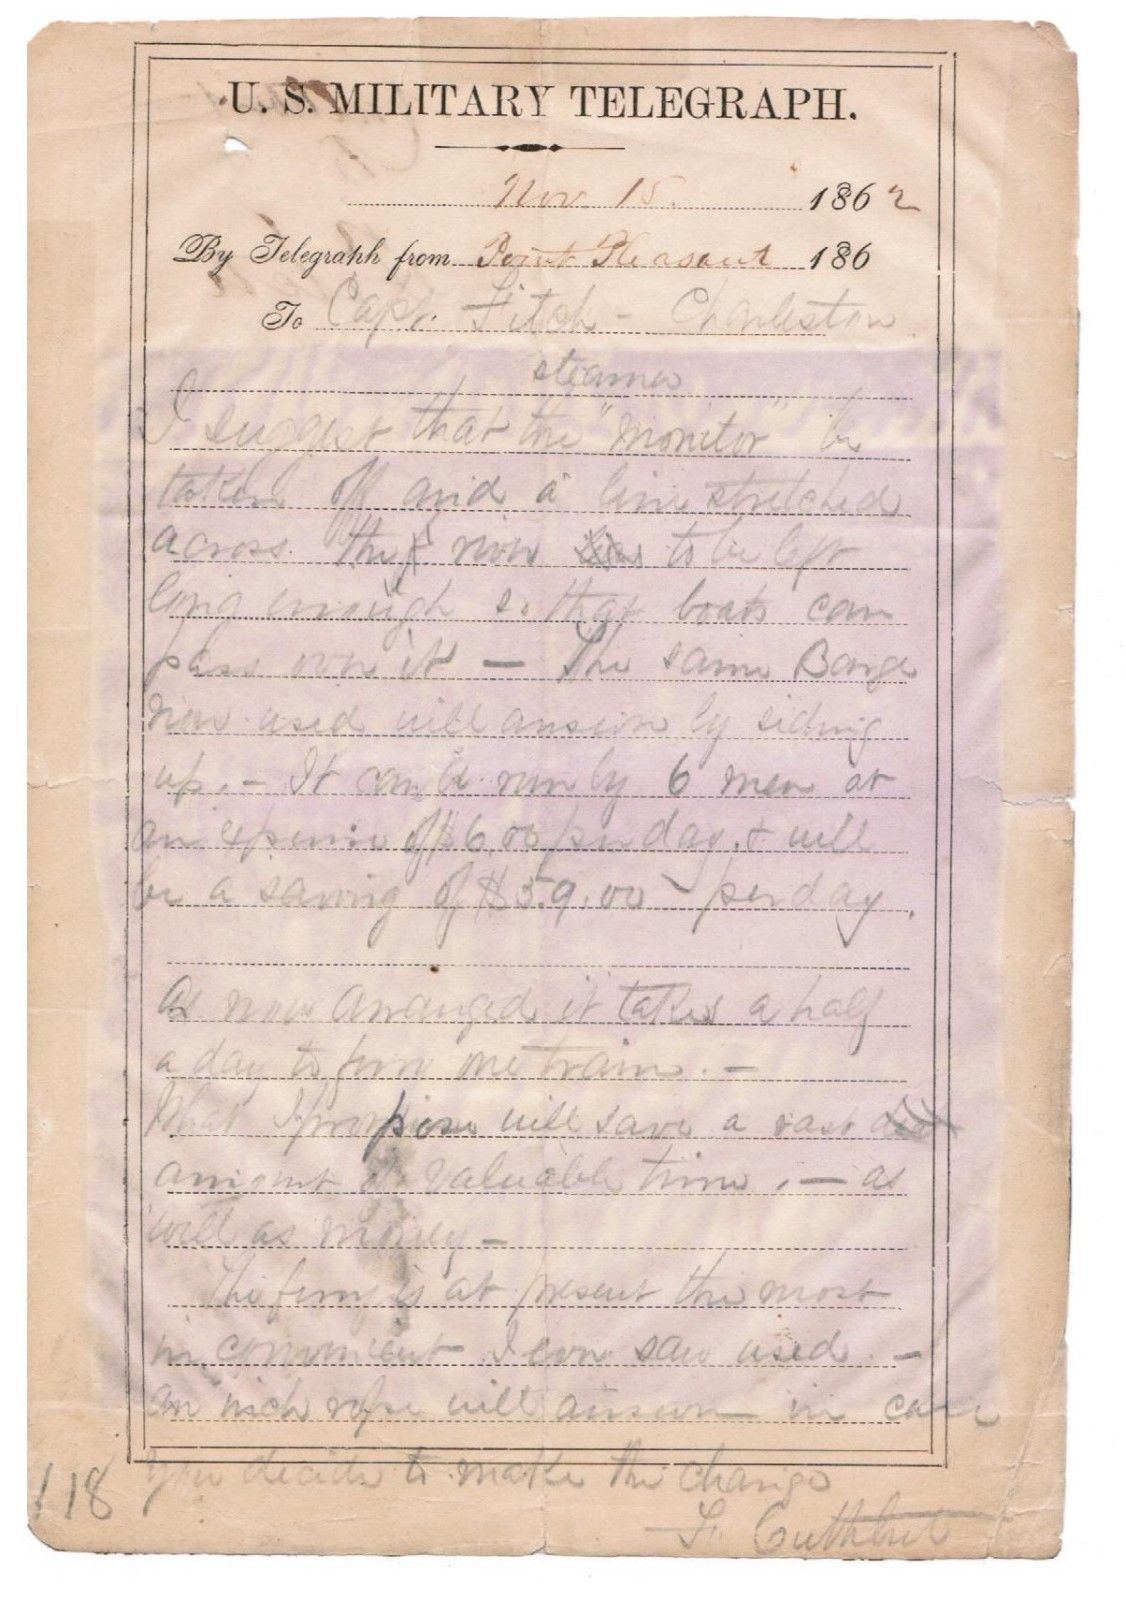 U. S. MILITARY TELEGRAPH.
Nov 15. 1862
By Telegraph from Point Pleasant 186
To Capt. Fitch - Charleston
steamer
I suggest that the "Monitor" be
taken off and a line stretched
across the river to be left
long enough so that boats can
pass over it — The same Barge
now used will answer by siding
up. - It can be run by 6 men at
an expense of $6.00 per day. & will
be a saving of $59.00 - per day.
As now arranged it takes a half
a day to ferry one train. -
What I propose will save a vast
amount of valuable time. — as
well as money -
The ferry is at present the most
inconvenient I ever saw used. -
an inch rope will answer in case
you decide to make the change
118
F. Cuthbert